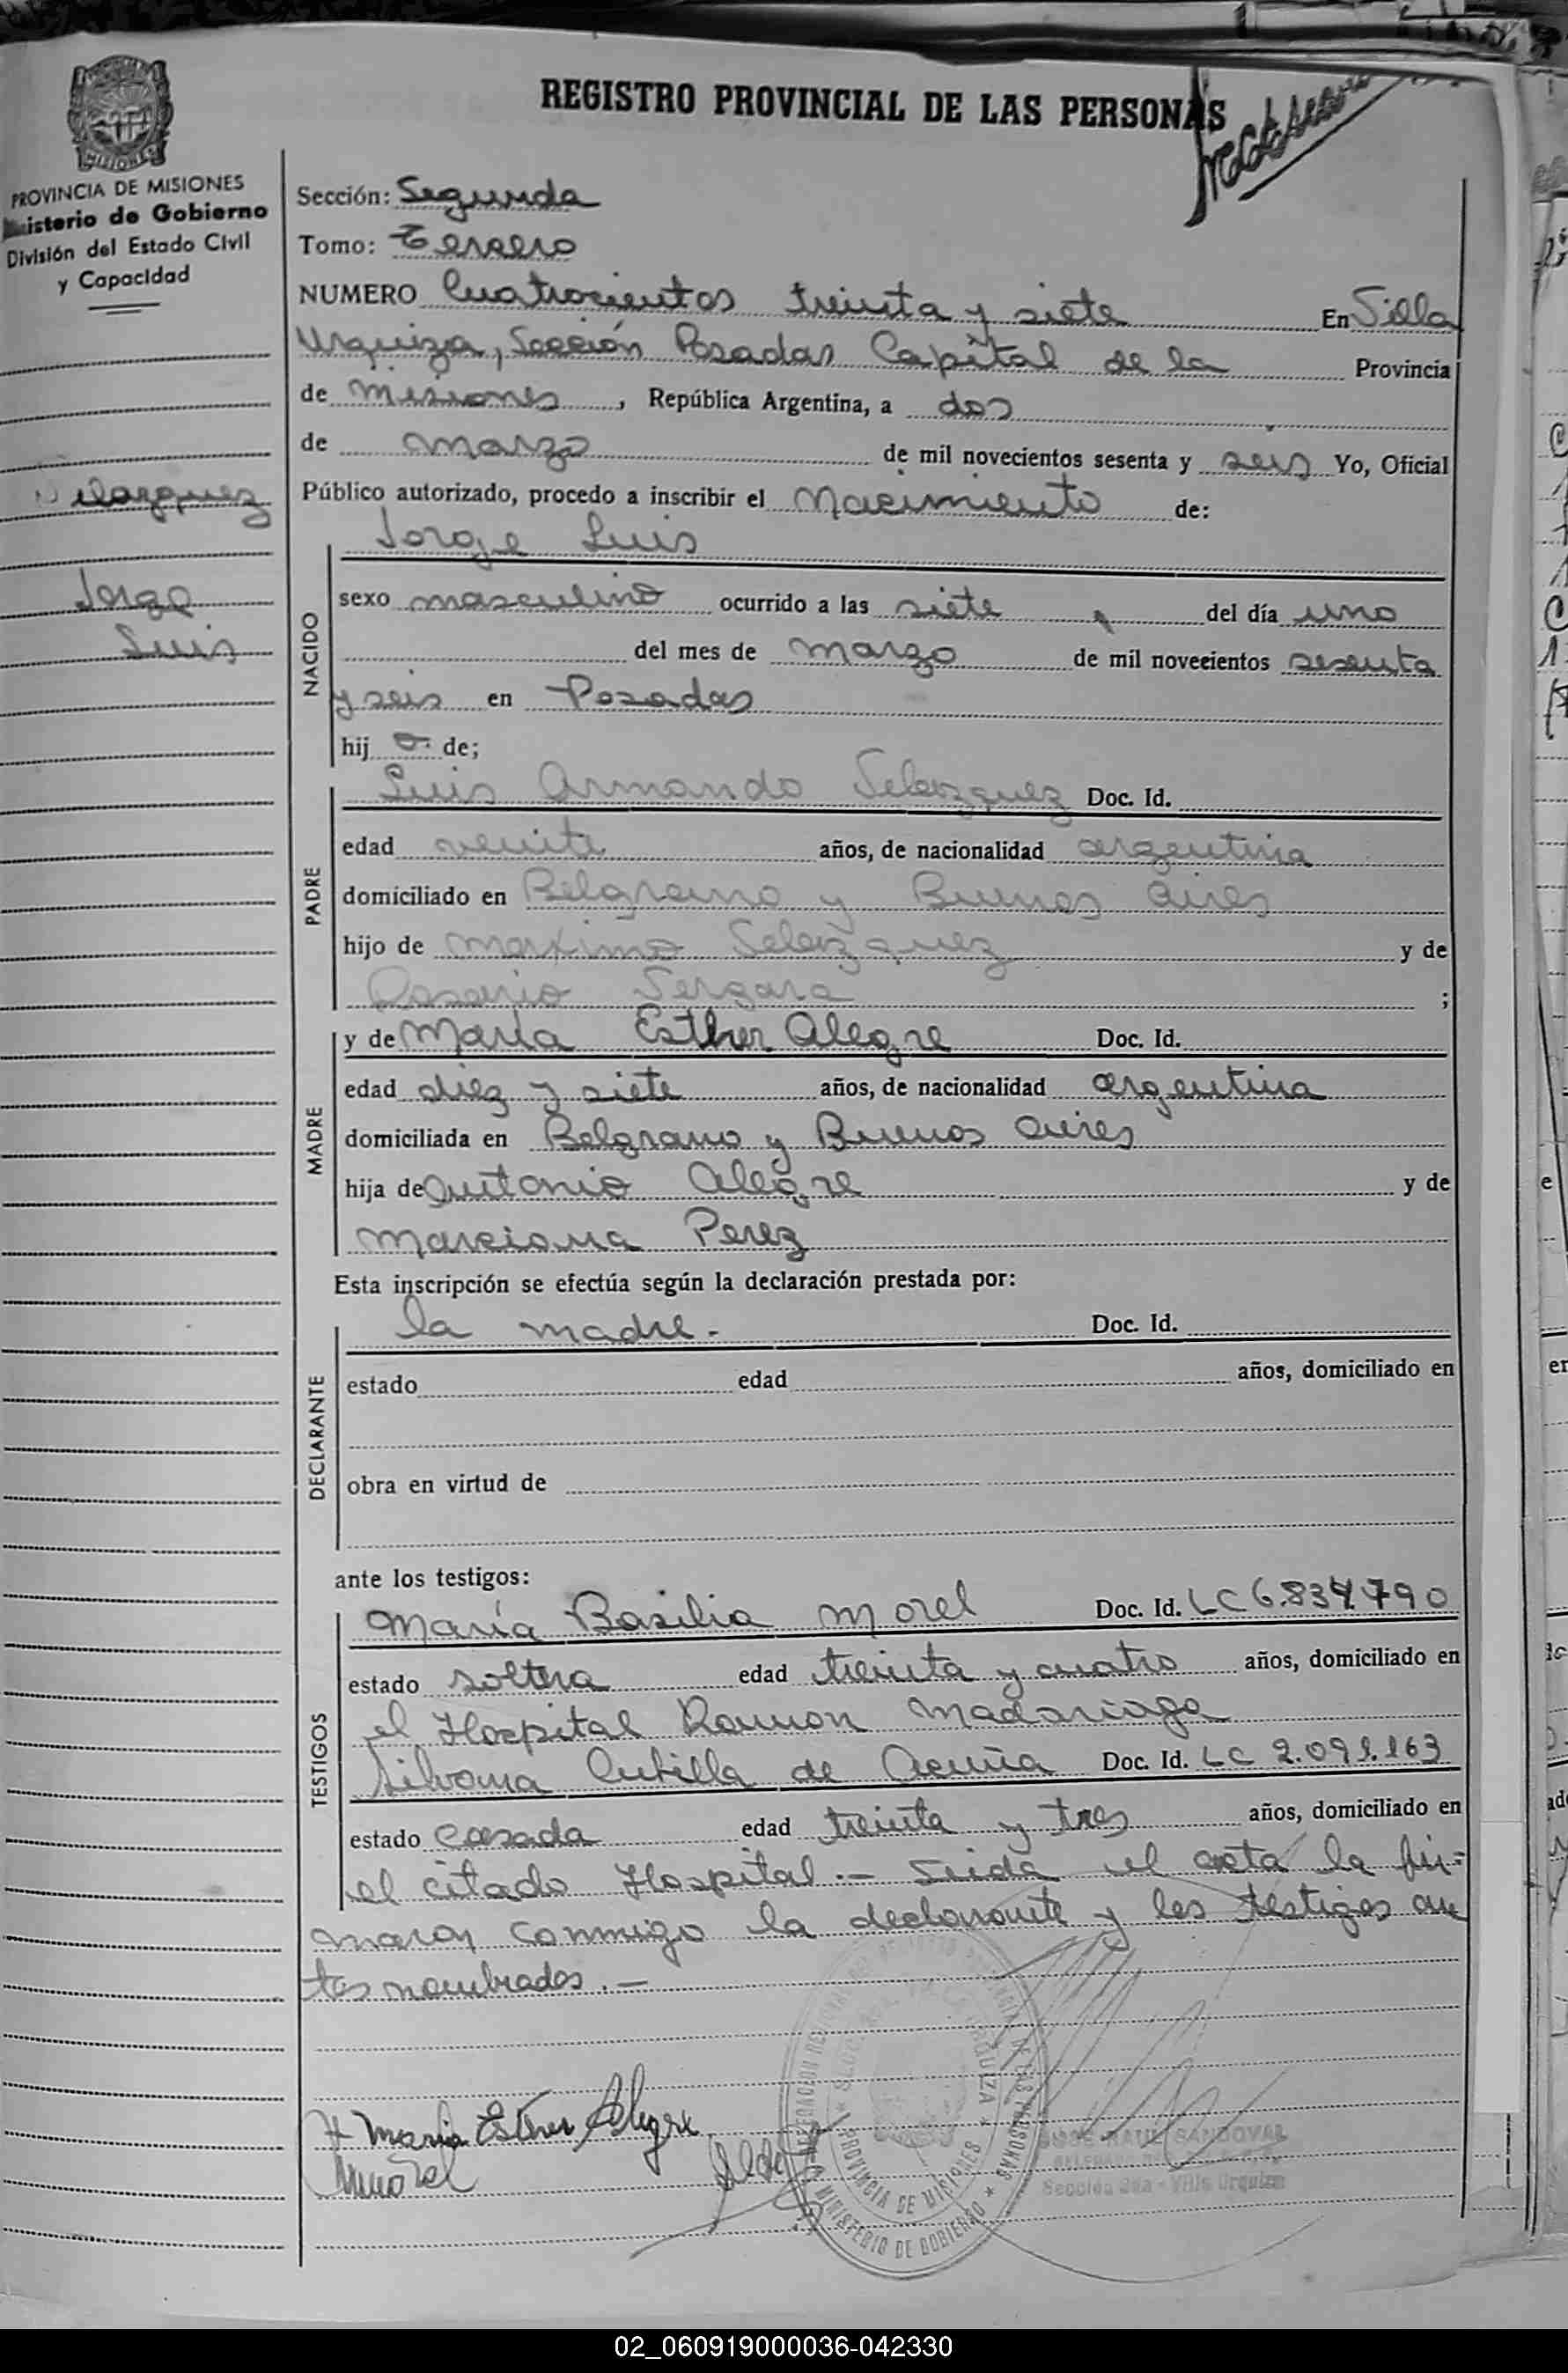 REGISTRO PROVINCIAL DE LAS PERSONAS
MISIONES
PROVINCIA DE MISIONES
Ministerio de Gobierno
División del Estado Civil
y Capacidad
Sección: Segunda
Tomo: Tercero
NUMERO Cuatrocientos treinta y siete En Villa
Urquiza, Sección Posadas Capital de la Provincia
de Misiones, República Argentina, a dos
de marzo de mil novecientos sesenta y seis Yo, Oficial
Público autorizado, procedo a inscribir el Nacimiento de:
Velazquez
Jorge
Luis
NACIDO
Jorge Luis
sexo masculino ocurrido a las siete del día uno
del mes de marzo de mil novecientos sesenta
y seis en Posadas
hij o de;
PADRE
Luis Armando Velazquez Doc. Id.
edad veinte años, de nacionalidad argentina
domiciliado en Belgrano y Buenos Aires
hijo de Maximo Velazquez y de
Rosario Vergara ;
MADRE
y de María Esther Alegre Doc. Id.
edad diez y siete años, de nacionalidad argentina
domiciliada en Belgrano y Buenos Aires
hija de Antonio Alegre y de
Marciana Perez
Esta inscripción se efectúa según la declaración prestada por:
DECLARANTE
la madre.- Doc. Id.
estado edad años, domiciliado en
obra en virtud de
ante los testigos:
TESTIGOS
María Basilia Morel Doc. Id. LC 6.834.790
estado soltera edad treinta y cuatro años, domiciliado en
el Hospital Ramon Madariaga
Silvana Cubilla de Acuña Doc. Id. LC 2.091.163
estado casada edad treinta y tres años, domiciliado en
el citado Hospital.- Leida el acta la fir=
maron conmigo la declarante y los testigos an
tes nombrados.-
Maria Esther Alegre
PROVINCIA DE MISIONES
MINISTERIO DE GOBIERNO
JOSE RAUL SANDOVAL
Sección 2da - Villa Urquiza
02_060919000036-042330